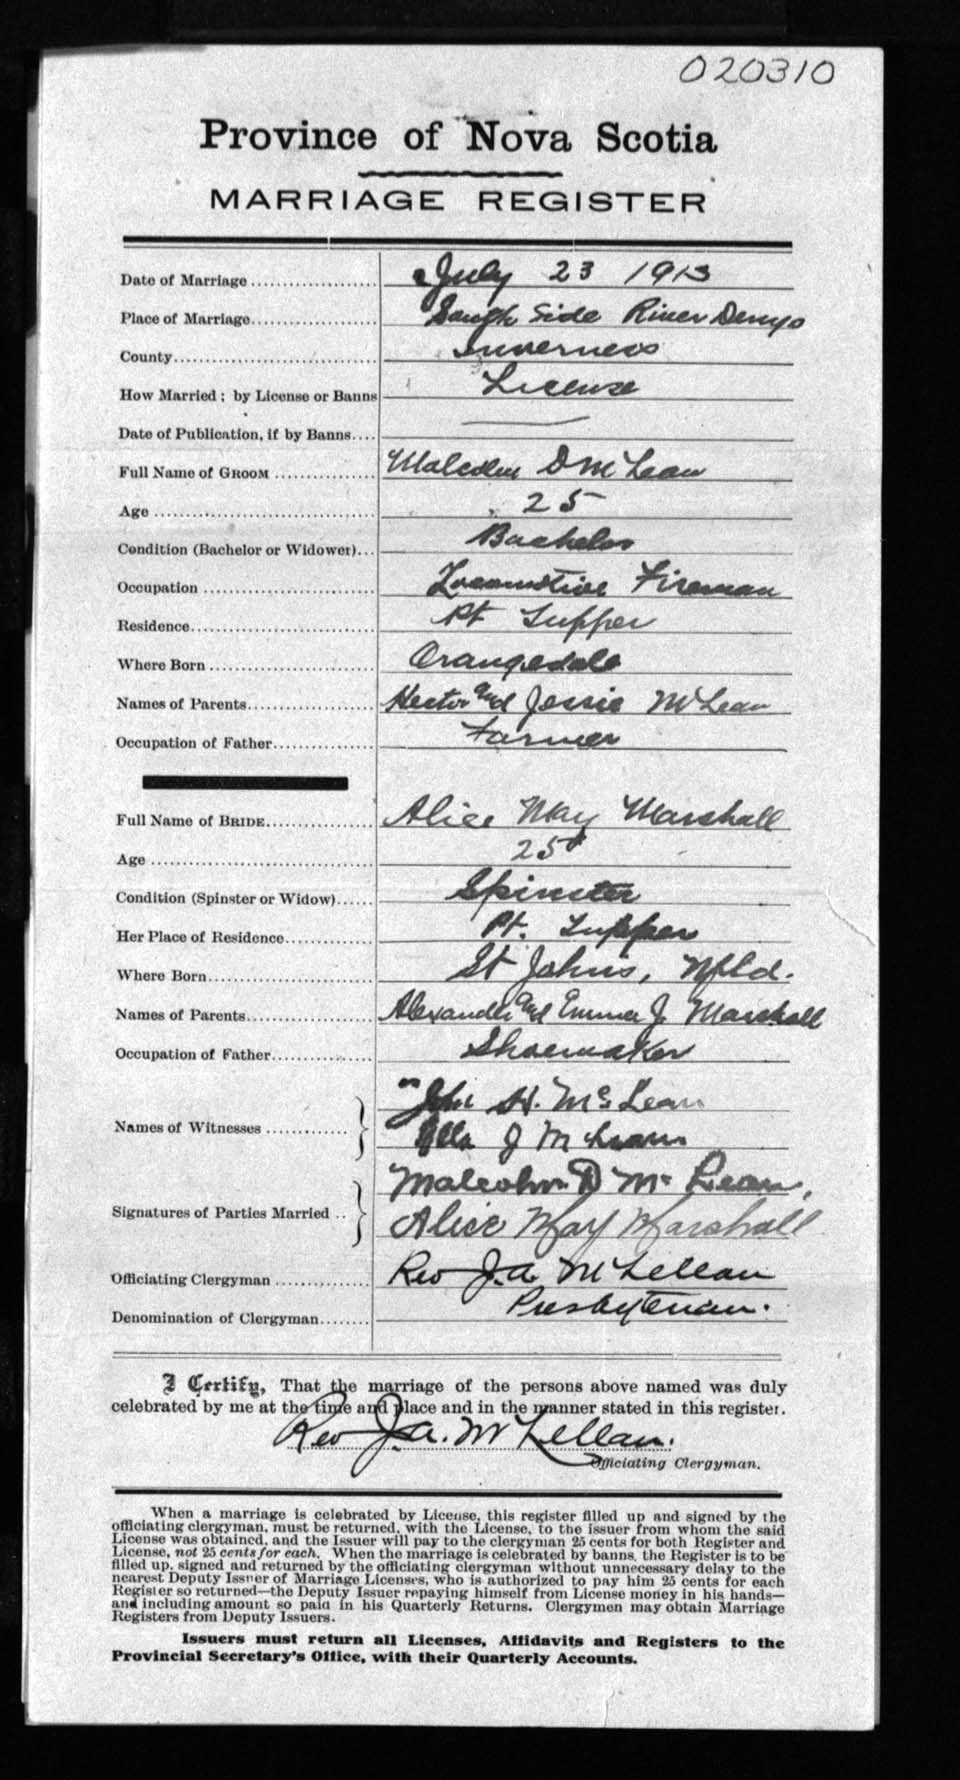 020310
Province of Nova Scotia
MARRIAGE REGISTER
Date of Marriage .................... July 23 1913
Place of Marriage.................... South Side River Denys
County.................... Inverness
How Married; by License or Banns License
Date of Publication, if by Banns.... —
Full Name of GROOM .................... Malcolm D McLean
Age .................... 25
Condition (Bachelor or Widower)... Bachelor
Occupation .................... Locomotive Fireman
Residence.................... Pt Tupper
Where Born .................... Orangedale
Names of Parents.................... Hector and Jessie McLean
Occupation of Father.................... Farmer
Full Name of BRIDE.................... Alice May Marshall
Age .................... 25
Condition (Spinster or Widow)...... Spinster
Her Place of Residence.............. Pt. Tupper
Where Born.................... St Johns, Nfld.
Names of Parents.................... Alexander and Emma J. Marshall
Occupation of Father.................... Shoemaker
John H. McLean
Names of Witnesses ............
J McLean
Malcolm D McLean,
Signatures of Parties Married ..
Alice May Marshall
Officiating Clergyman .............. Rev J. A. McLellan
Denomination of Clergyman........ Presbyterian.
I Certify, That the marriage of the persons above named was duly
celebrated by me at the time and place and in the manner stated in this register.
Rev J. A. McLellan.
Officiating Clergyman.
When a marriage is celebrated by License, this register filled up and signed by the
officiating clergyman, must be returned, with the License, to the issuer from whom the said
License was obtained, and the Issuer will pay to the clergyman 25 cents for both Register and
License, not 25 cents for each. When the marriage is celebrated by banns, the Register is to be
filled up, signed and returned by the officiating clergyman without unnecessary delay to the
nearest Deputy Issuer of Marriage Licenses, who is authorized to pay him 25 cents for each
Register so returned—the Deputy Issuer repaying himself from License money in his hands—
and including amount so paid in his Quarterly Returns. Clergymen may obtain Marriage
Registers from Deputy Issuers.
Issuers must return all Licenses, Affidavits and Registers to the
Provincial Secretary's Office, with their Quarterly Accounts.